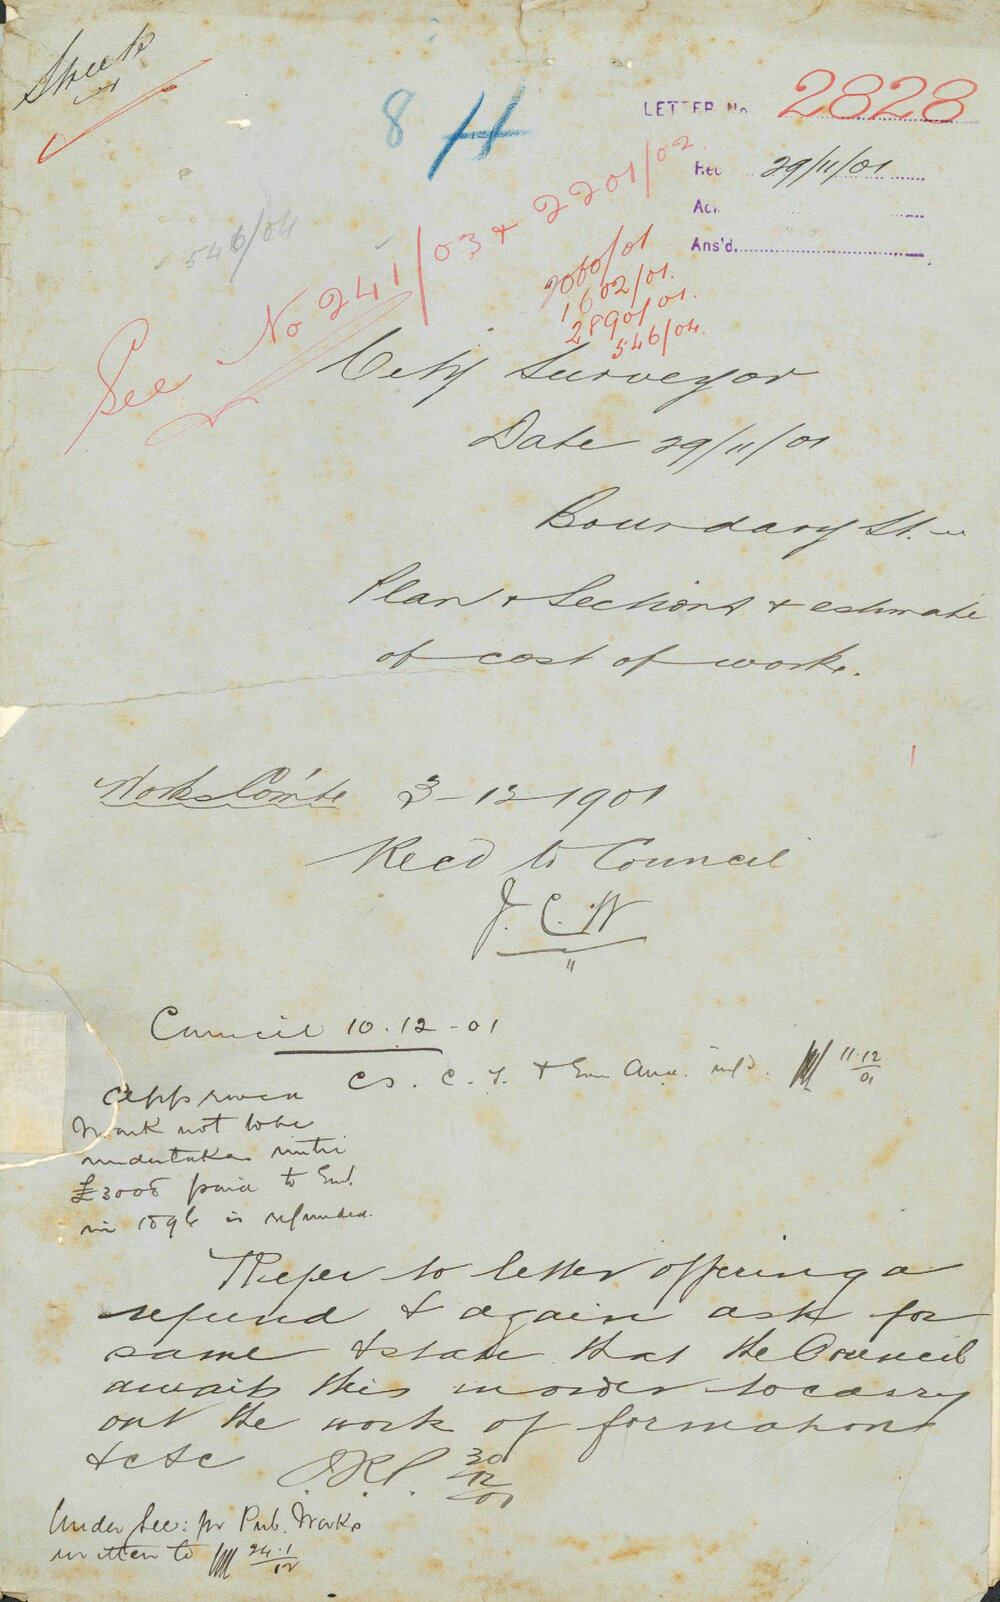 LETTER No 2828
8 H
Rec 29/11/01
Ack
Ans'd.
546/04
See No 241/03 + 2201/02.
2060/01
1602/01.
2890/01.
546/04.
City Surveyor
Date 29/11/01
Boundary St.
Plan & Sections & estimate
of cost of work.
Works Com'te 3-12-1901
Recd to Council
J. C. W
Council 10.12-01
Approved
Work not to be
undertaken until
£3000 paid to Gov.
in 1896 is refunded.
CS. C. T. &
11.12
01
Refer to letter offering a
refund & again ask for
same & state that the Council
awaits this in order to carry
out the work of formation
&c &c
30
12
01
Under Sec: for Pub. Works
written to 24.1